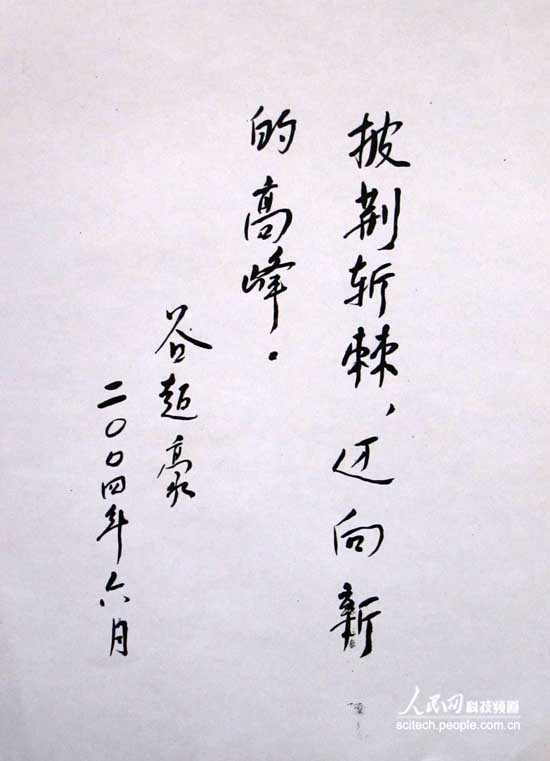 披荆斩棘，迈向新
的高峰.
谷超豪
二〇〇四年六月
人民网 科技频道
scitech.people.com.cn